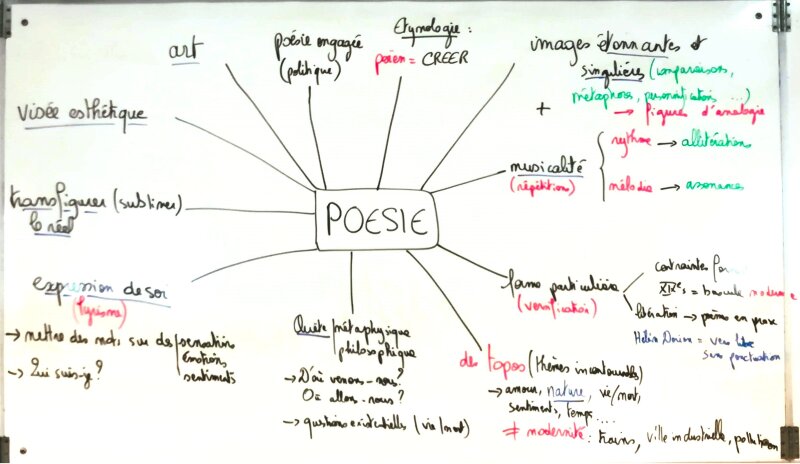 art
poésie engagée
(politique)
Etymologie :
poiein = CREER
images étonnantes et
singulières (comparaisons,
métaphores, personnifications ...)
→ figures d'analogie
+
musicalité
(répétitions)
rythme → allitération
mélodie → assonance
visée esthétique
transfigurer (sublimer)
le réel
POESIE
expression de soi
(lyrisme)
→ mettre des mots sur des sensations
émotions
sentiments
→ Qui suis-je ?
Quête métaphysique
philosophique
→ D'où venons-nous ?
Où allons-nous ?
→ questions existentielles (vie/mort)
forme particulière
(versification)
contraintes
XIXe s = bascule moderne
libération → poème en prose
Hélène Dorion = vers libre
sans ponctuation
des topos (thèmes incontournables)
→ amour, nature, vie/mort,
sentiments, temps ....
≠ modernité : trains, ville industrielle, pollution